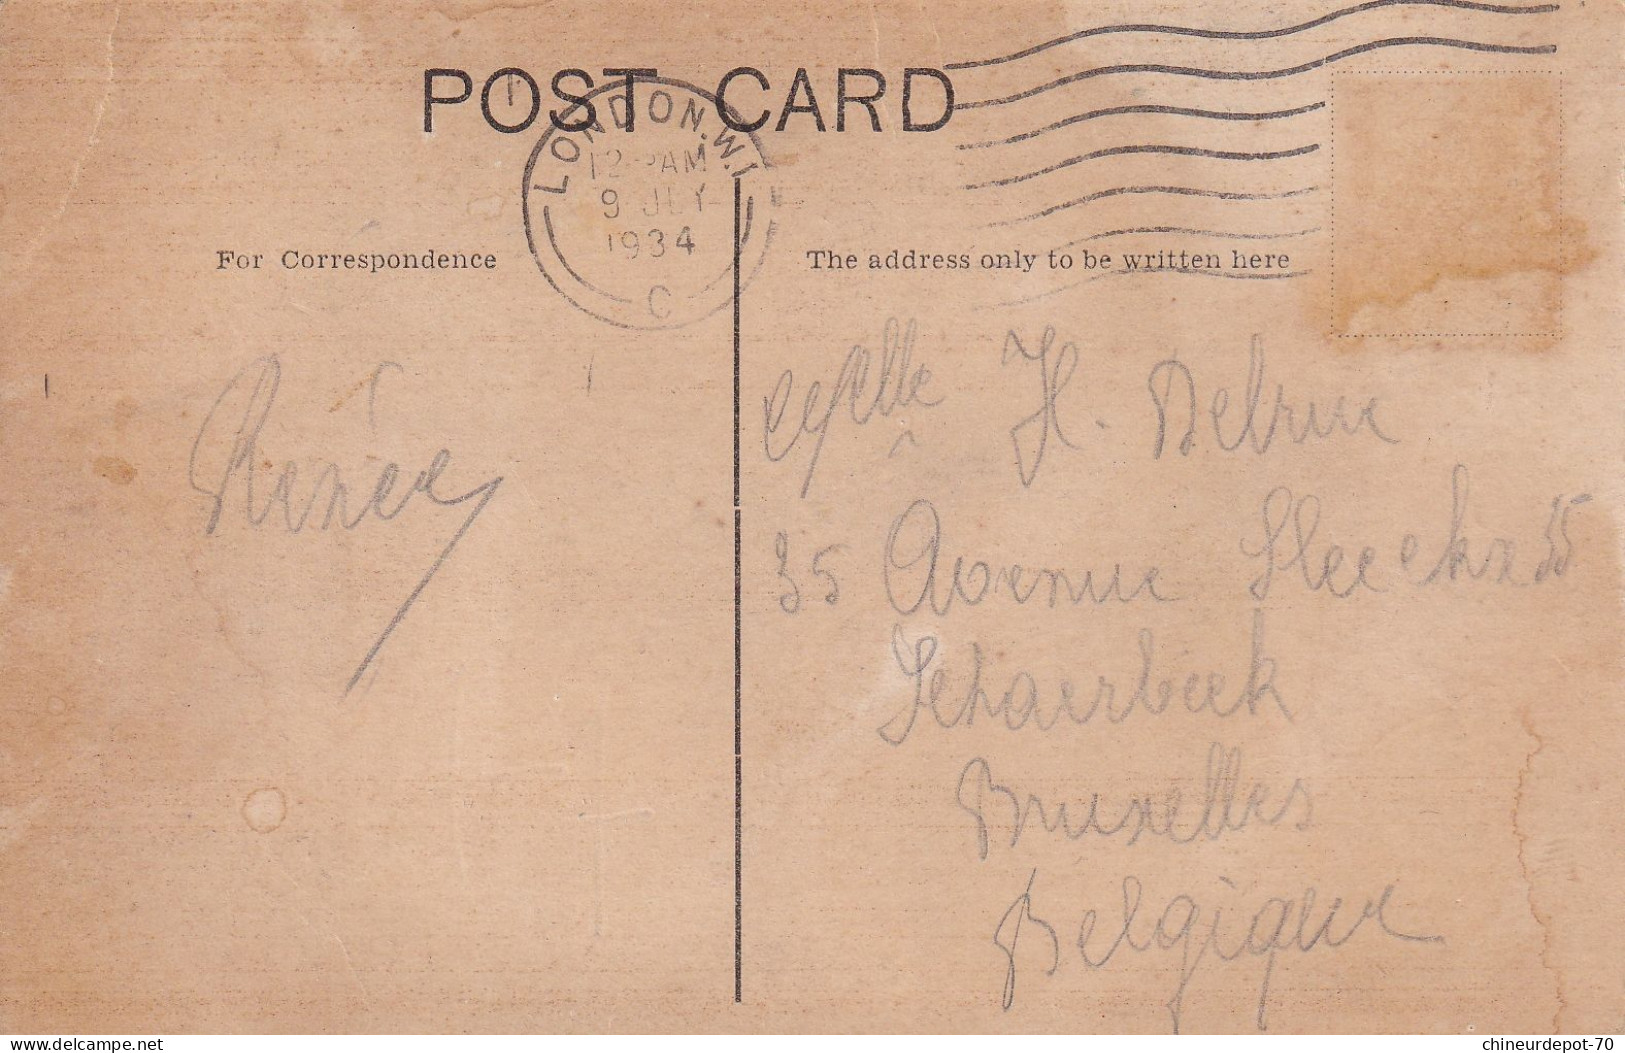 POST CARD
LONDON.W.1
12 AM
9 JLY
1934
C
For Correspondence
The address only to be written here
Renée
Melle H. Delrue
35 Avenue Sleeckx 35
Schaerbeek
Bruxelles
Belgique
delcampe.net
chineurdepot-70